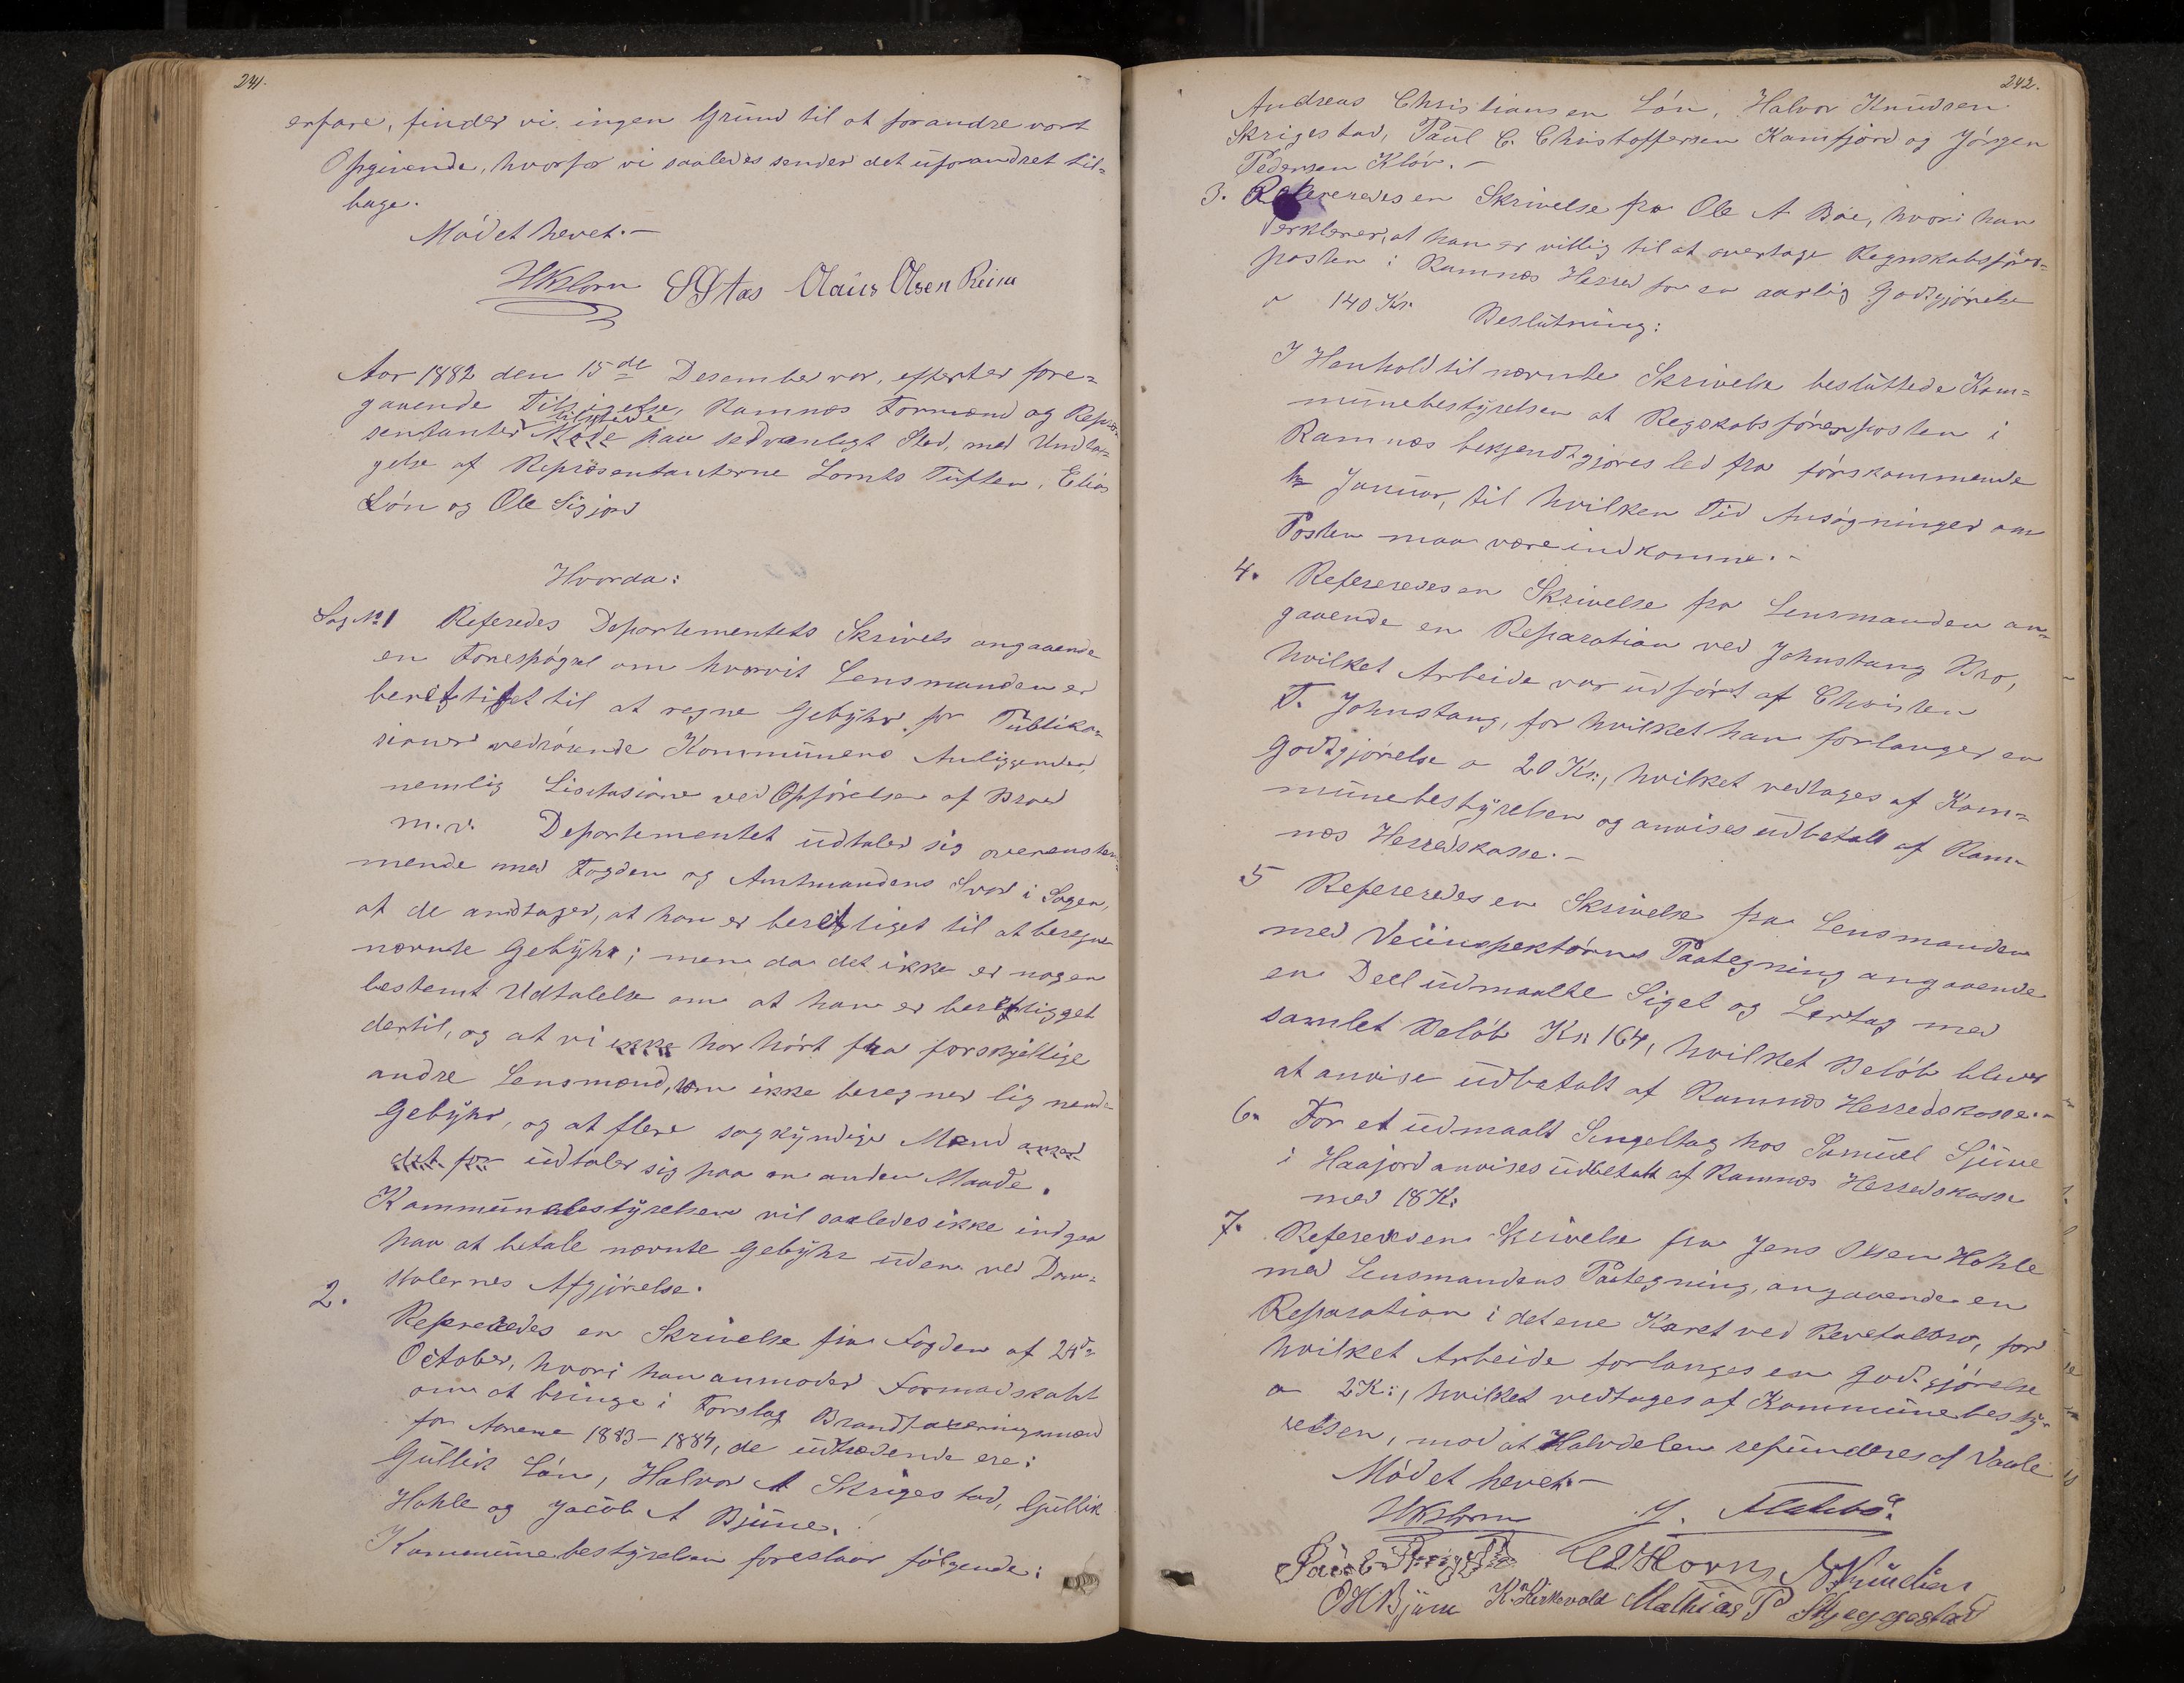 241.
erfare, finder vi ingen Grund til at forandre vort
Opgivende, hvorfor vi saaledes sender det uforandret til-
bage.
Mødet hevet.-
HKHorn Olaus Olsen Reina
Aar 1882 den 15de Desember var, efterter fore-
gaaende Tilsigelse, Ramnæs Formænd og Repræ-
tilstede
sentanter Møde paa sedvanligt Sted, med Undta-
gelse af Repræsentanterne Tuften, Elias
Løn og Ole Sigjord
Hvorda:
Sag No 1 Referedes Departementets Skrivels angaaende
en Forespøgsel om hvorvit Lensmanden er
berettiget til at regne Gebyhr for Publika-
sioner vedrørende Kommunens Anliggender,
nemlig Lisitasione ved Opførelse af Broer
m.v. Departementet udtaler sig overenstem-
mende med Fogden og Amtmandens Svar i Sagen,
at de andtager, at han er berettiget til at beregne
nævnte Gebyhr; men da det ikke er nogen
bestemt Udtalelse om at han er berettigget
dertil, og at vi ikke har hørt fra forskjellige
andre Lensmænd, som ikke beregner lignende
Gebyhr, og at flere sagkyndige Mænd
det for udtaler sig paa en anden Maade.
Kommunebestyrelsen vil saaledes ikke indgaa
paa at betale nævnte Gebyhr uden ved Dom-
stolernes Afgjørelse.
2. Refereredes en Skrivelse fra Fogden af 24de
October, hvori han anmoder Formadskabt
om at bringe i Forslag Brandtaxeringsmænd
for Aarene 1883-1884, de udtrædende ere:
Gullik Løn, Halvor A Skrigestad, Gullik
Hohle og Jacob A Bjune.
Kommunebestyrelsen foreslaar følgende:
242.
Andreas Christiansen Løn, Halvor Knudsen
Skrigestad, Paul C. Christoffersen Kamfjord og Jørgen
Pedersen Kløv.-
3. Refereredes en Skrivelse fra Ole A Bøe, hvori han
erklerer, at han er villig til at overtage Regnskabsfører-
posten i Ramnæs Herred for en aarlig Godtgjørelse
a 140 Kr. Beslutning:
I Henhold til nævnte Skrivelse besluttede Kom-
munebestyrelsen at Regskabsførerposten i
Ramnæs bekjendtgjøres led fra førskommende
Januar, til hvilken Tid Ansøgninger om
Posten maa være indkomne.-
4. Refereredes en Skrivelse fra Lensmanden an-
gaaende en Reparation ved Johnstang Bro,
hvilket Arbeide var udført af Christen
T. Johnstang, for hvilket han forlanger en
Godtgjørelse a 20 Kr, hvilket vedtages af Kom-
munebestyrelsen og anvises udbetalt af Ram-
næs Herredskasse.-
5 Refereredes en Skrivelse fra Lensmanden
med Veiinspektørns Paategning angaaende
en Deel udmaalte Sigel og Lertag med
samlet Beløb Kr 164, hvilket Beløb blever
at anvise udbetalt af Ramnæs Herredskasse.-
6. For et udmaalt Sengeltag hos Samuel Sjune
i Haajord anvises udbetalt af Ramnæs Herredskasse
med 18 K:
7. Refereredesen Skrivelse fra Jens Olsen Hohle
med Lensmandens Paategning, angaaende en
Reparation i det ene Karet ved Revetalbro, for
hvilket Arbeide forlanges en Godtgjørelse
a 2K:, hvilket vedtages af Kommunebesty-
relsen, mod at Halvdelen refunderes af Vaale
Mødet hevet.-
HKHorn
Horn
OHBjune K. Kirkevold Mathias P Skjeggestad